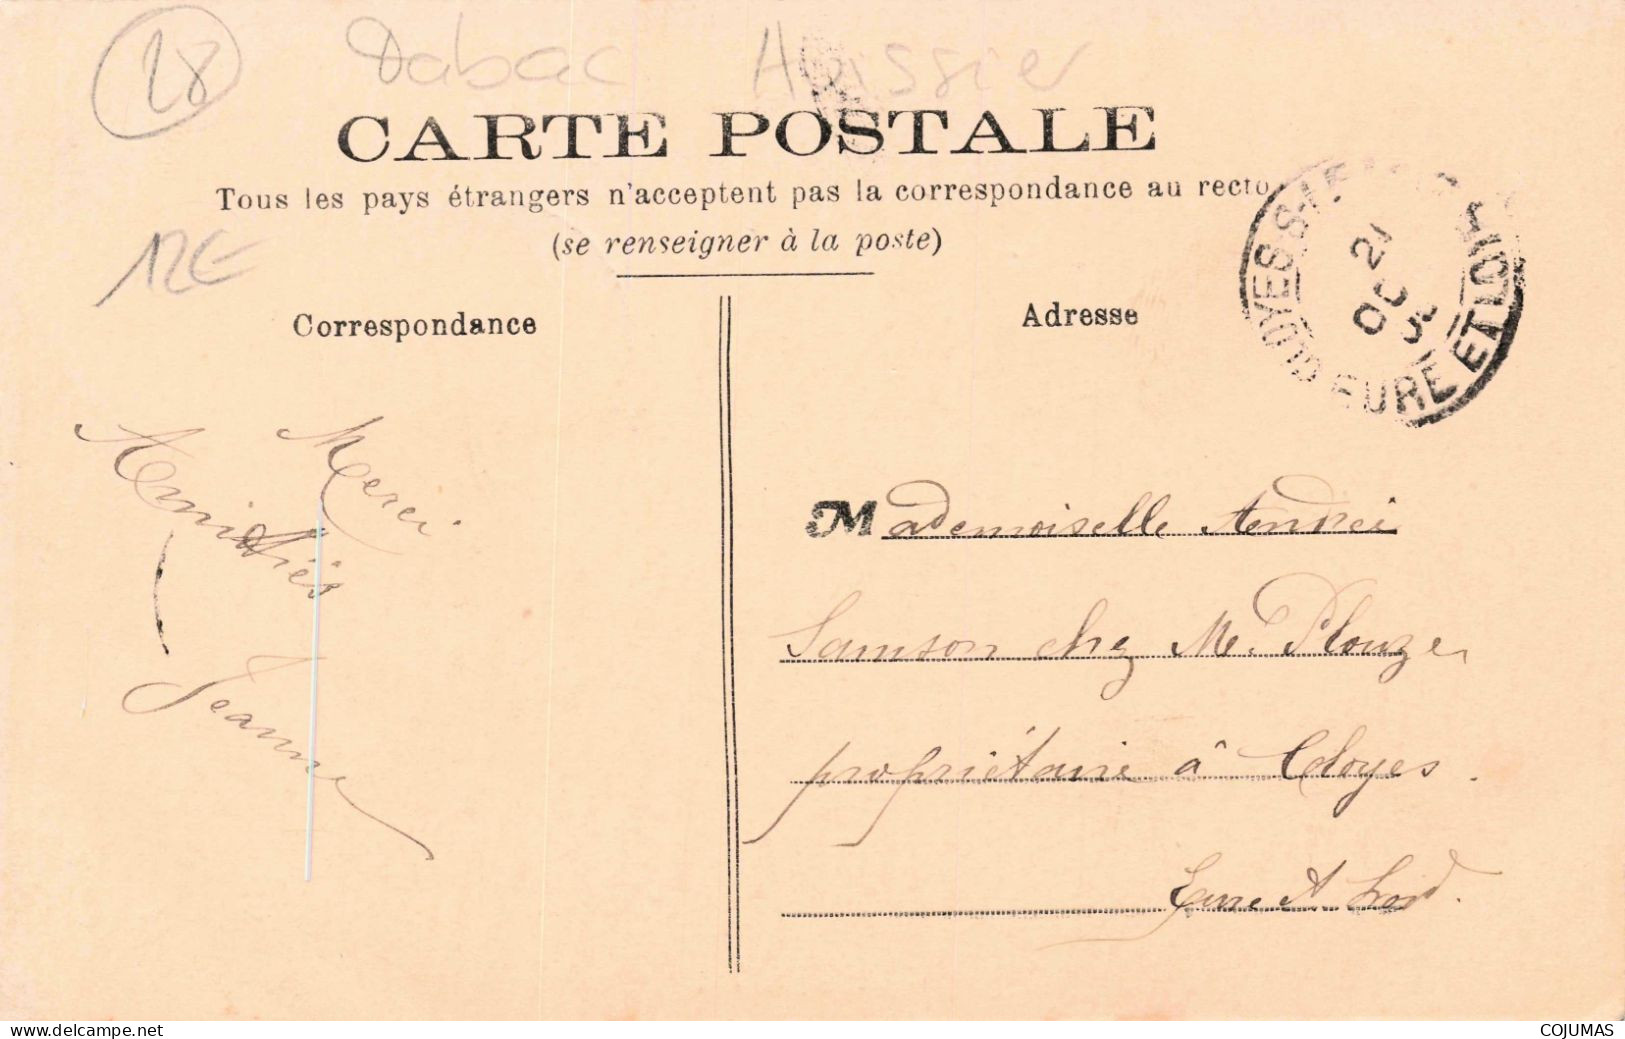 28
Tabac Huissier
CARTE POSTALE
Tous les pays étrangers n'acceptent pas la correspondance au recto
(se renseigner à la poste)
12€
Correspondance
Adresse
CLOYES-S-LE-LOIR
21
OC
EURE ET LOIR
Merci
Amitiés
Jeanne
Mademoiselle Andréi
Samson chez M. Plouzer
propriétaire à Cloyes.
Eure & Loir.
www.delcampe.net
COJUMAS